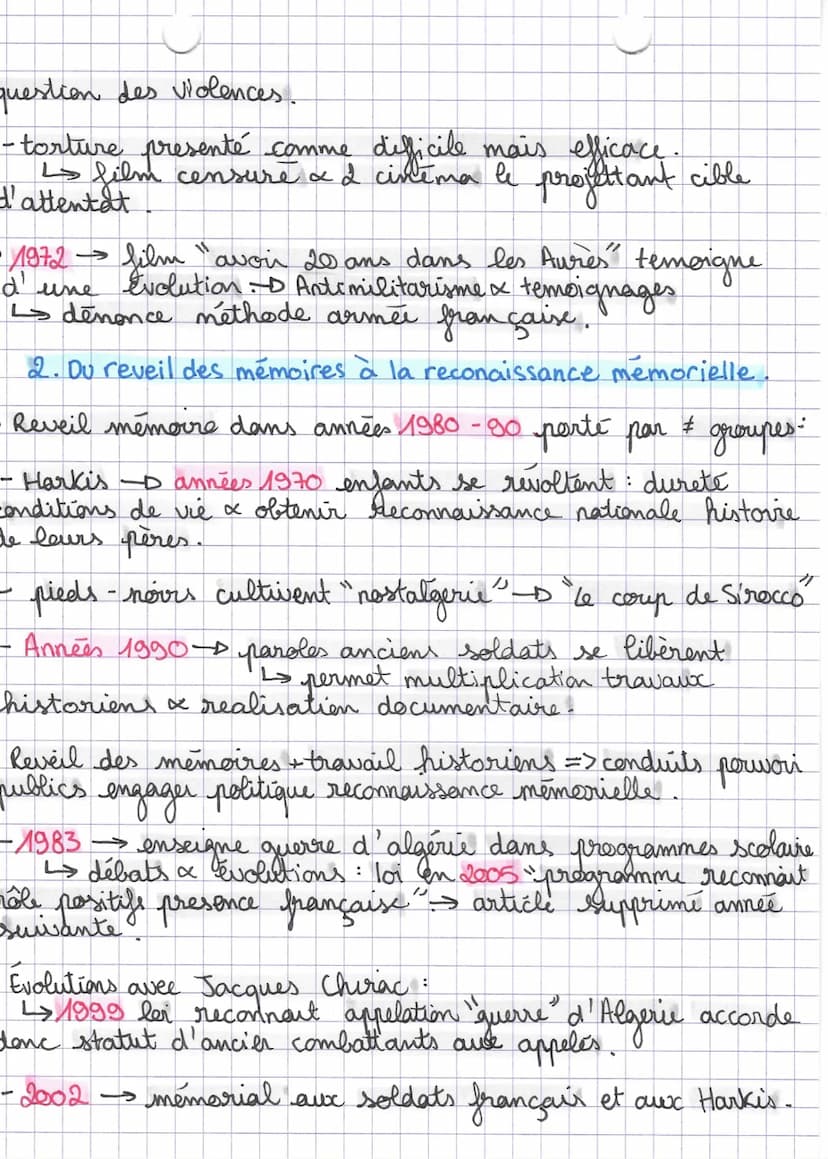 question des violences.
- torture presenté comme difficile mais efficace.
↳ film censuré ∝ 2 cinéma le projettant cible
d'attentat.
1972 → film "avoir 20 ans dans les Aurès" temoigne
d'une évolution → Antimilitarisme ∝ temoignages
↳ dénonce méthode armée française.
2. Du reveil des mémoires à la reconaissance mémorielle.
Reveil mémoire dans années 1980-90 porté par ≠ groupes:
- Harkis → années 1970 enfants se révoltent : dureté
conditions de vie ∝ obtenir reconnaissance nationale histoire
de leurs pères.
- pieds-noirs cultivent "nostalgerie" → "Le coup de Sirocco"
- Années 1990 → paroles anciens soldats se libèrent
↳ permet multiplication travaux
historiens ∝ realisation documentaire.
Reveil des mémoires + travail historiens => conduits pouvoir
publics engager politique reconnaissance mémorielle.
- 1983 → enseigne guerre d'algérie dans programmes scolaire
↳ débats ∝ évolutions : loi en 2005 "programme reconnait
rôle positifs presence française" → article supprimé année
suivante.
Évolutions avec Jacques Chirac :
↳ 1999 loi reconnait appelation "guerre" d'Algerie accorde
donc statut d'ancien combattants aux appelés.
- 2002 → mémorial aux soldats français et aux Harkis.